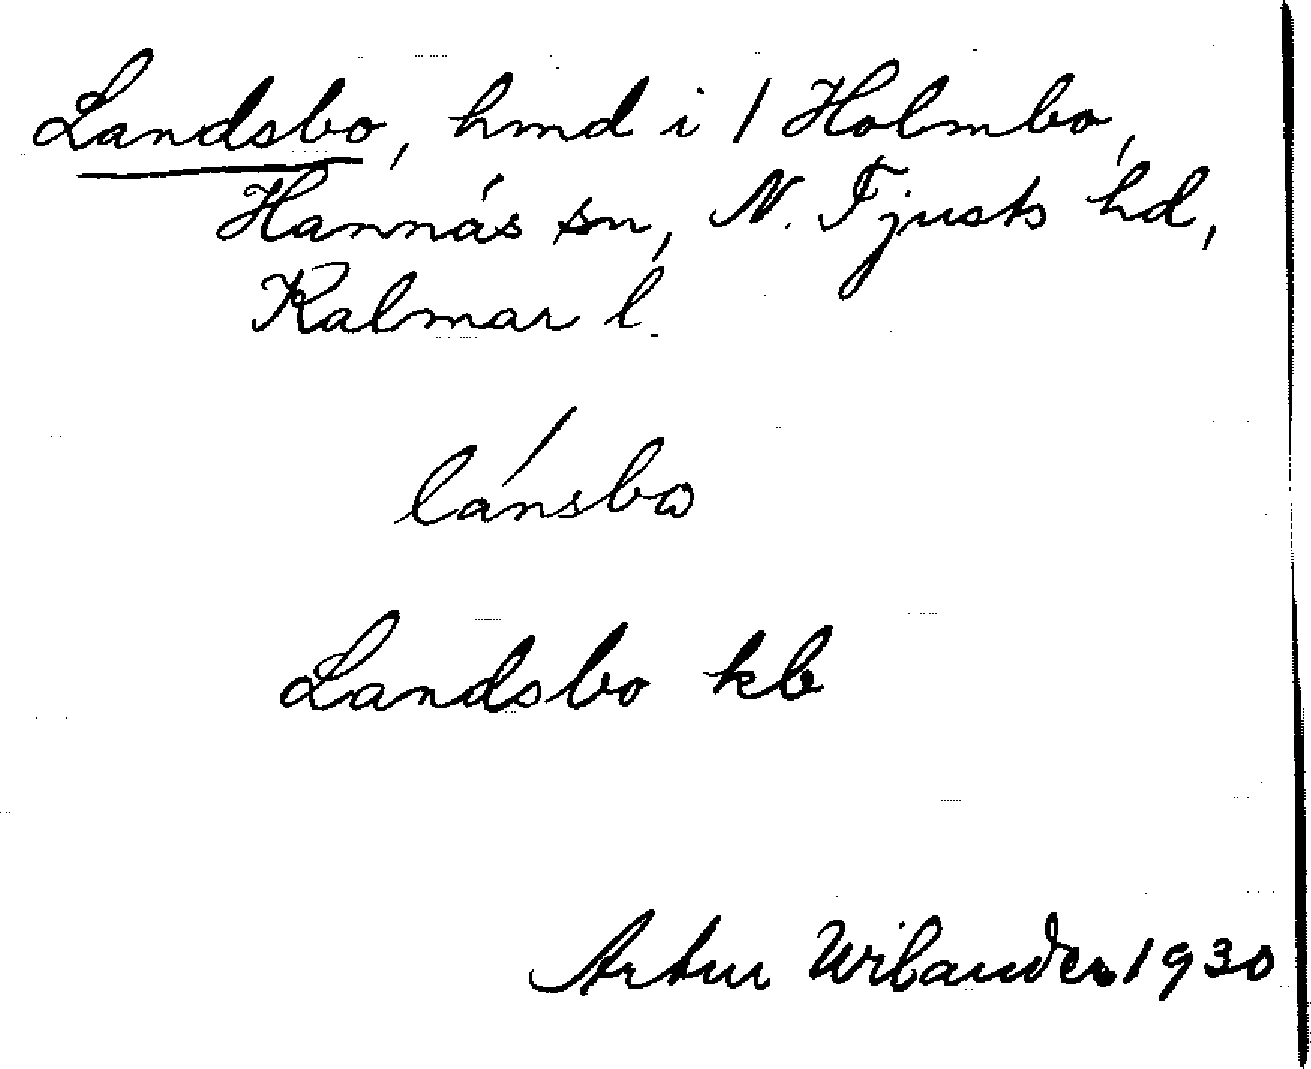 Landsbo, hmd i 1 Holmbo,
Hannäs sn, N. Tjusts hd,
Kalmar l.
lánsbω
Landsbo kb
Artur Wilander 1930